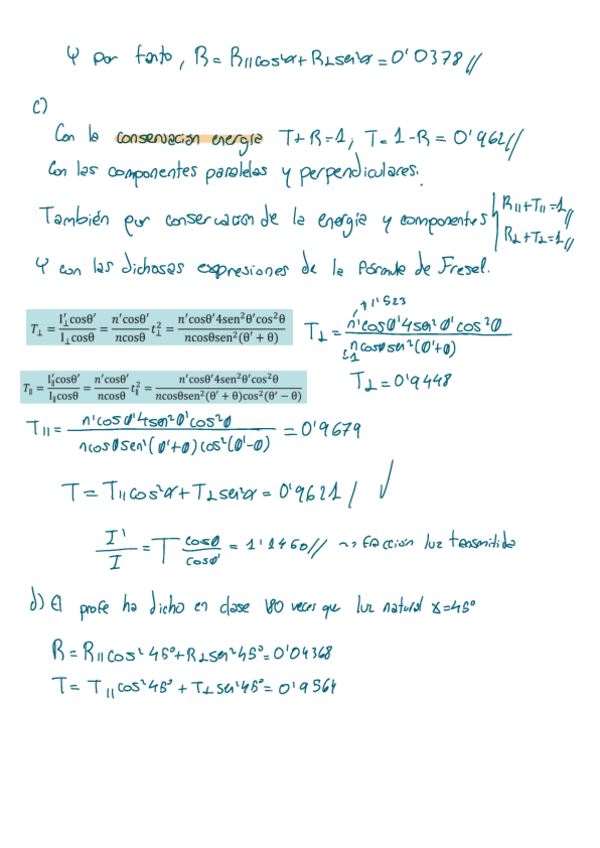 Y por tanto, R = R∥cos²α + R⊥sen²α = 0'0378//
c)
Con la conservacion energia T+R=1; T=1-R = 0'962//
Con las componentes paralelas y perpendiculares.
También por conservación de la energía y componentes | R∥+T∥=1// R⊥+T⊥=1//
Y con las dichosas expresiones de la fórmula de Fresel.
T⊥ = I'⊥cosθ' / I⊥cosθ = n'cosθ' / ncosθ t²⊥ = n'cosθ'4sen²θ'cos²θ / ncosθsen²(θ' + θ)
1'523
T⊥ = n'cosθ'4sen²θ'cos²θ / ncosθsen²(θ'+θ)
1
T⊥ = 0'9448
T∥ = I'∥cosθ' / I∥cosθ = n'cosθ' / ncosθ t²∥ = n'cosθ'4sen²θ'cos²θ / ncosθsen²(θ' + θ)cos²(θ' − θ)
T∥ = n'cosθ'4sen²θ'cos²θ / ncosθsen²(θ'+θ)cos²(θ'-θ) = 0'9679
T = T∥cos²α + T⊥sen²α = 0'9621 / ✓
I' / I = T cosθ / cosθ' = 1'1460// → fracción luz transmitida
d) El profe ha dicho en clase 180 veces que luz natural α=45°
R = R∥cos²45° + R⊥sen²45° = 0'04368
T = T∥cos²45° + T⊥sen²45° = 0'9564